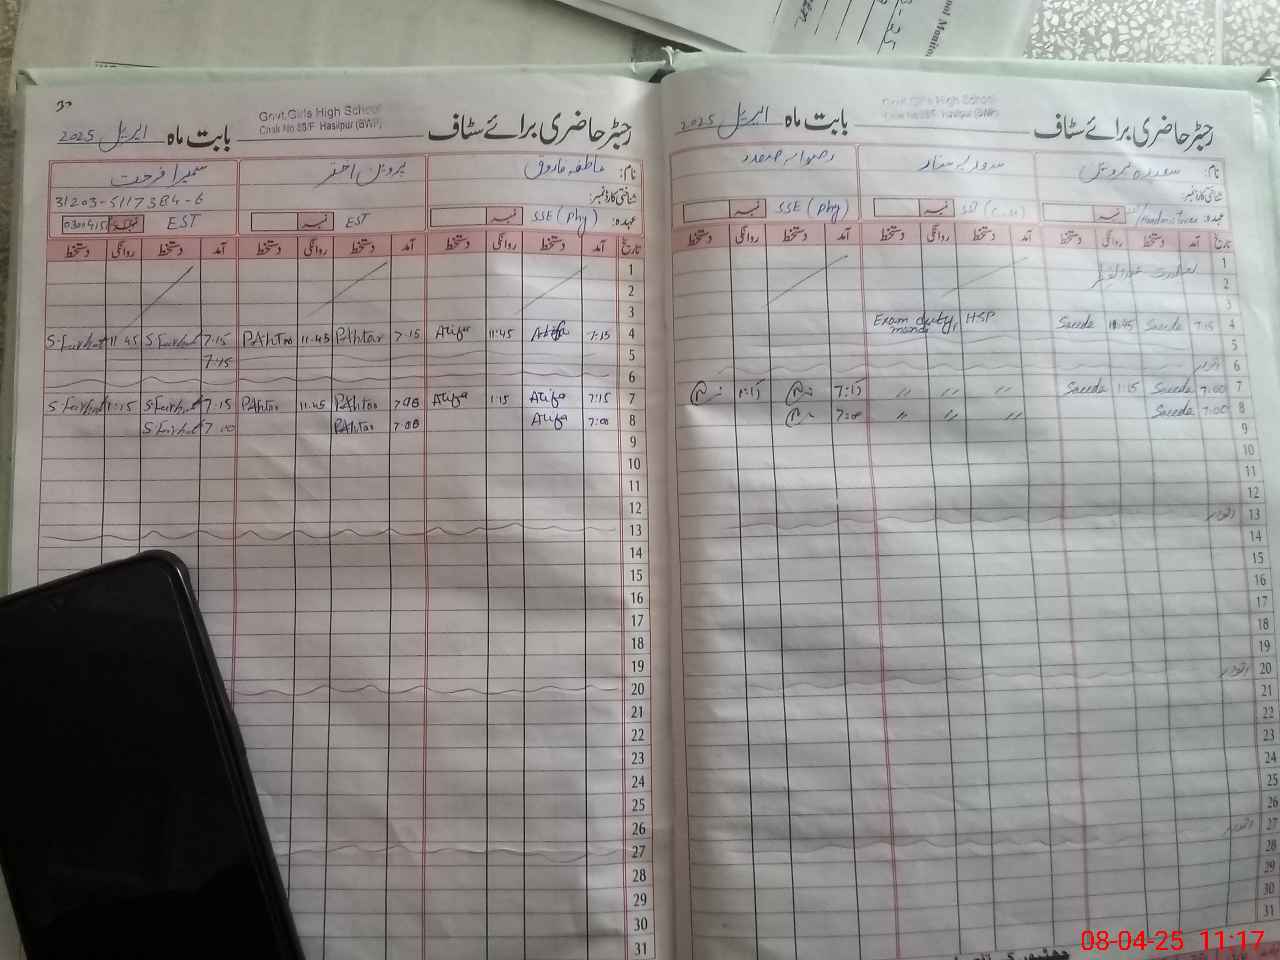 رجسٹر حاضری برائے سٹاف
بابت ماہ اپریل 2025
Govt.Girls High School
نام: سعیدہ پروین
شناختی کارڈ نمبر:
عہدہ: نمبر
SSE (Phy) نمبر
تاریخ آمد دستخط روانگی دستخط آمد دستخط روانگی دستخط آمد دستخط روانگی دستخط
1
2
3
4 7:15 Saeeda 11:45 Saeeda Exam duty, HSP
5
6 اتوار
7 7:00 Saeeda 1:15 Saeeda " " " 7:15 1:15
8 7:00 Saeeda " " " 7:00
9
10
11
12
13 اتوار
14
15
16
17
18
19
20 اتوار
21
22
23
24
25
26
27 اتوار
28
29
30
31
رجسٹر حاضری برائے سٹاف
Govt.Girls High School
Chak No 88/F Hasilpur (BWP)
بابت ماہ اپریل 2025
نام: عاطفہ فاروق پروین اختر سمیرا فرحت
شناختی کارڈ نمبر:
عہدہ: SSE (Phy) نمبر EST EST نمبر
تاریخ آمد دستخط روانگی دستخط آمد دستخط روانگی دستخط آمد دستخط روانگی دستخط
1
2
3
4 7:15 Atifa 11:45 Atifa 7:15 PAhtar 11:45 PAhtar 7:15 S.Farhat 11:45 S.Farhat
5 7:15
6
7 7:15 Atifa 1:15 Atifa 7:00 PAhtar 11:45 PAhtar 7:15 S.Farhat 1:15 S.Farhat
8 7:00 Atifa 7:00 PAhtar 7:00 S.Farhat
9
10
11
12
13
14
15
16
17
18
19
20
21
22
23
24
25
26
27
28
29
30
31
08-04-25 11:17